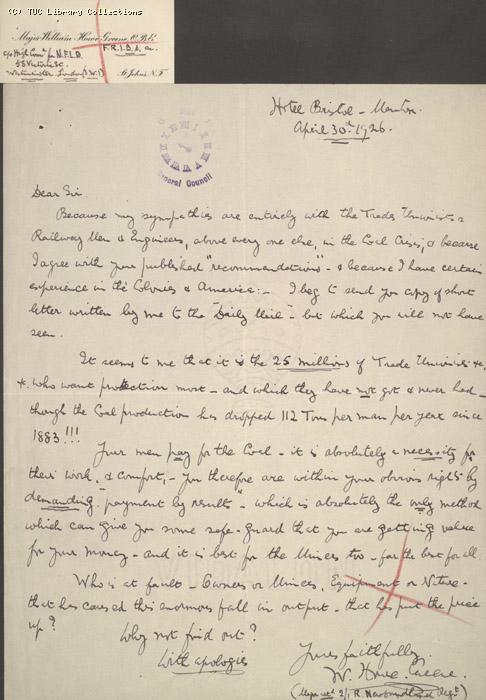 (c) TUC Library Collections
Major William Howe Greene, O.B.E.
F.R.I.B.A.
c/o High Comr for N.F.L.D.
58 Victoria St.
Westminster London (S.W.1)
St Johns. N.F.
Hotel Bristol - Menton.
April 30th 1926.
General Council
Dear Sir.
Because my sympathies are entirely with the Trades Unionists &
Railway Men & Engineers, above every one else, in the Coal Crisis, & because
I agree with your published "recommendations" - & because I have certain
experience in the Colonies & America:- I beg to send you copy of short
letter written by me to the "Daily Mail" - but which you will not have
seen.
It seems to me that it is the 25 millions of Trade Unionists &c,
&c, who want protection most - and which they have not got & never had -
though the Coal production has dropped 112 Tons per man per year since
1883!!!
Your men pay for the Coal - it is absolutely a necessity for
their work, & comfort, - you therefore are within your obvious rights by
demanding "payment by results" - which is absolutely the only method
which can give you some safe-guard that you are getting value
for your money - and it is best for the Miners too - far the best for all.
Who is at fault - Owners or Miners, Equipment or Nature -
that has caused this enormous fall in output - that has put the price
up?
Why not find out?
With apologies
Yours faithfully,
W. Howe Greene.
(Major 2/1 R. Newfoundland Regt)